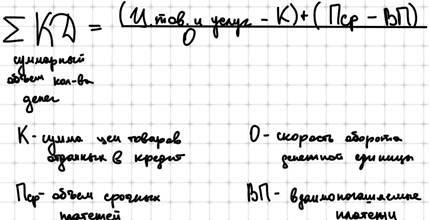 ∑ КД = (Ц. тов. и услуг - К) + (Пср - ВП)
О
суммарный
объем кол-ва
денег
К - сумма цен товаров
отданных в кредит
О - скорость оборота
денежной единицы
Пср - объем срочных
платежей
ВП - взаимопогашаемые
платежи